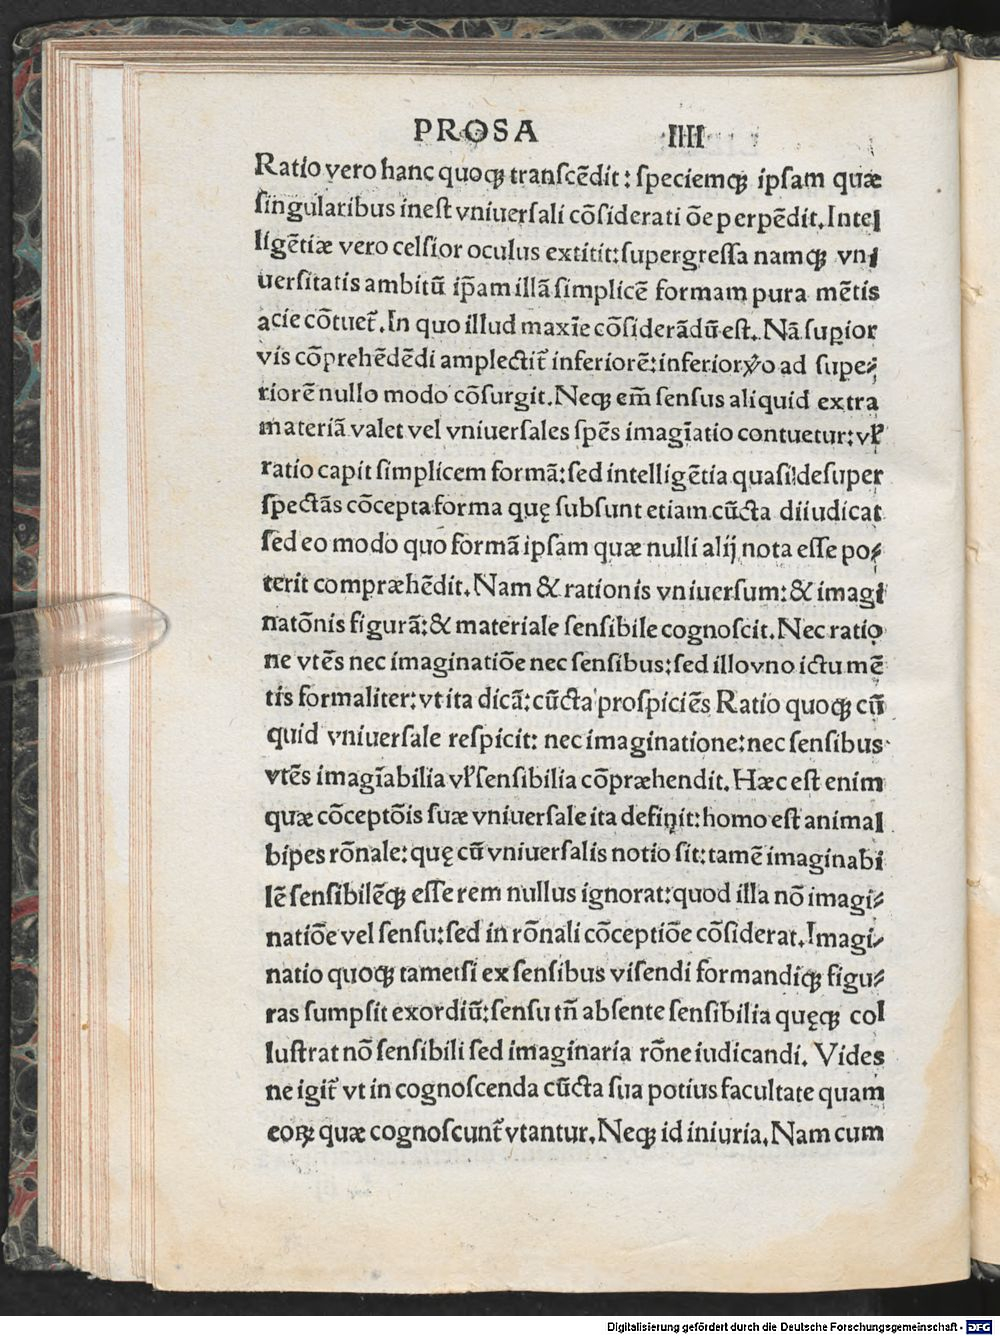 PROSA IIII
Ratio vero hanc quoqꝫ tranſcēdit: ſpeciemqꝫ ipſam quæ
ſingularibus ineſt vniuerſali cōſiderati ōe perpēdit. Intel
ligētiæ vero celſior oculus extitit: ſupergreſſa namqꝫ vni
uerſitatis ambitū ip̄am illā ſimplicē formam pura mētis
acie cōtuet᷑. In quo illud maxīe cōſiderādū eſt. Nā ſuꝑior
vis cōprehēdēdi amplectit᷑ inferiorē: inferior ṽo ad ſupe⸗
riorē nullo modo cōſurgit. Neqꝫ em̄ ſenſus aliquid extra
materiā valet vel vniuerſales ſpēs imagīatio contuetur: vꝉ
ratio capit ſimplicem formā: ſed intelligētia quaſi deſuper
ſpectās cōcepta forma quę ſubſunt etiam cūcta diiudicat
ſed eo modo quo formā ipſam quæ nulli alij nota eſſe po⸗
terit compræhēdit. Nam & rationis vniuerſum: & imagi
natōnis figurā: & materiale ſenſibile cognoſcit. Nec ratio
ne vtēs nec imaginatiōe nec ſenſibus: ſed illo vno ictu mē
tis formaliter: vt ita dicā: cūcta proſpiciēs Ratio quoqꝫ cū
quid vniuerſale reſpicit: nec imaginatione: nec ſenſibus
vtēs imagīabilia vꝉ ſenſibilia cōpræhendit. Hæc eſt enim
quæ cōceptōis ſuæ vniuerſale ita definit: homo eſt animal
bipes rōnale: quę cū vniuerſalis notio ſit: tamē imaginabi
lē ſenſibilēqꝫ eſſe rem nullus ignorat: quod illa nō imagi⸗
natiōe vel ſenſu: ſed in rōnali cōceptiōe cōſiderat. Imagi⸗
natio quoqꝫ tametſi ex ſenſibus viſendi formandiqꝫ figu⸗
ras ſumpſit exordiū: ſenſu tn̄ abſente ſenſibilia quęqꝫ col
luſtrat nō ſenſibili ſed imaginaria rōne iudicandi. Vides
ne igit᷑ vt in cognoſcenda cūcta ſua potius facultate quam
eoꝝ quæ cognoſcunt᷑ vtantur. Neqꝫ id iniuria. Nam cum
Digitalisierung gefördert durch die Deutsche Forschungsgemeinschaft - DFG